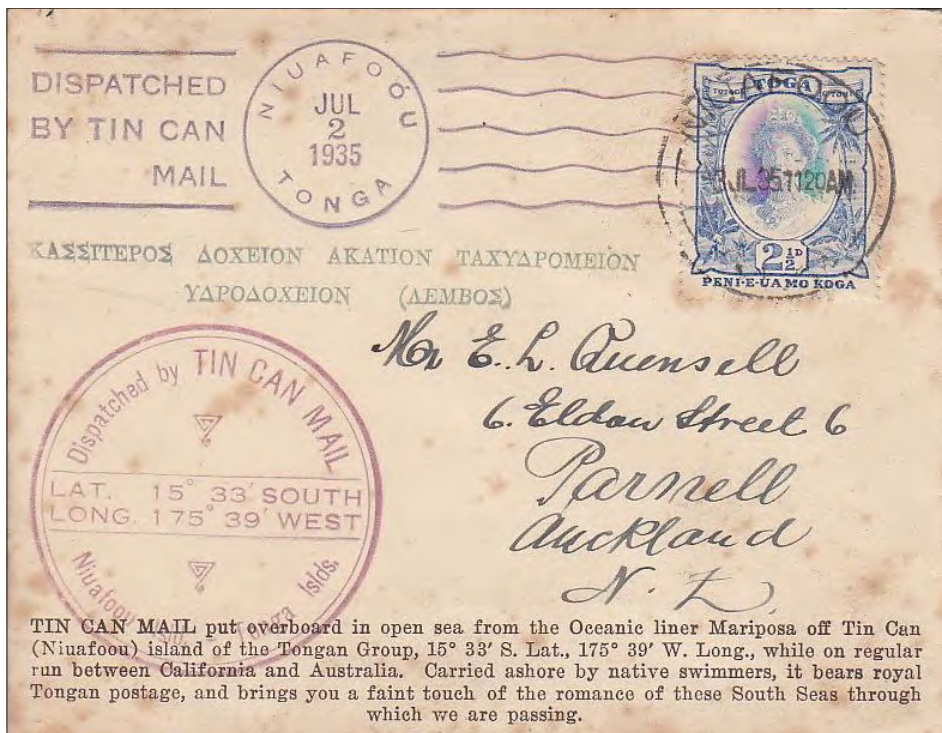 DISPATCHED
BY TIN CAN
MAIL
NIUAFOÓU
JUL
2
1935
TONGA
TOGA
JL.35.1120AM
2½D
PENI·E·UA MO KOGA
ΚΑΣΣΙΤΕΡΟΣ ΔΟΧΕΙΟΝ ΑΚΑΤΙΟΝ ΤΑΧΥΔΡΟΜΕΙΟΝ
ΥΔΡΟΔΟΧΕΙΟΝ (ΛΕΜΒΟΣ)
Mr E. L. Quensell
6. Eldon Street 6
Parnell
Auckland
N. Z.
Dispatched by TIN CAN MAIL
LAT. 15° 33' SOUTH
LONG. 175° 39' WEST
Niuafoou Tonga Islds.
TIN CAN MAIL put overboard in open sea from the Oceanic liner Mariposa off Tin Can
(Niuafoou) island of the Tongan Group, 15° 33' S. Lat., 175° 39' W. Long., while on regular
run between California and Australia. Carried ashore by native swimmers, it bears royal
Tongan postage, and brings you a faint touch of the romance of these South Seas through
which we are passing.